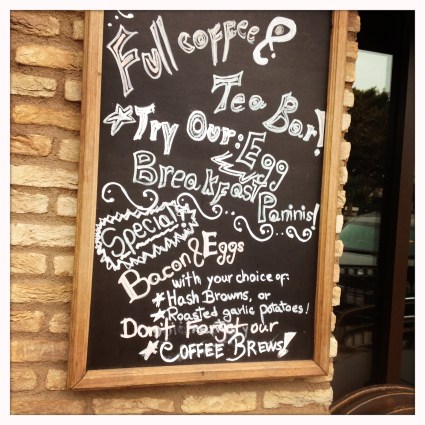 Full coffee &
Tea Bar!
Try Our: Egg
Breakfast
Paninis!
Special
Bacon & Eggs
with your choice of:
Hash Browns, or
Roasted garlic potatoes!
Don't Forget our
COFFEE BREWS!